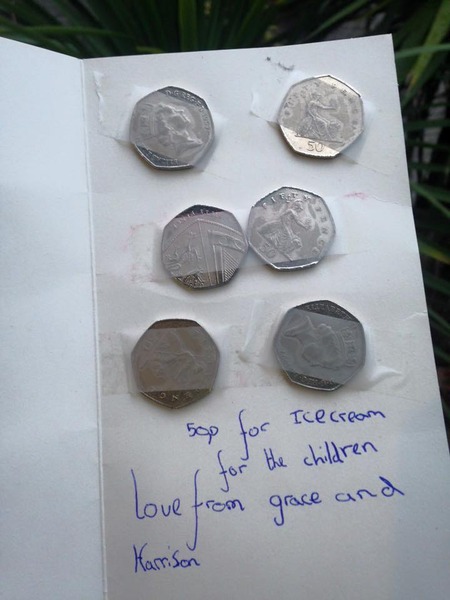 50
50p for Icecream
for the children
Love from grace and
Harrison